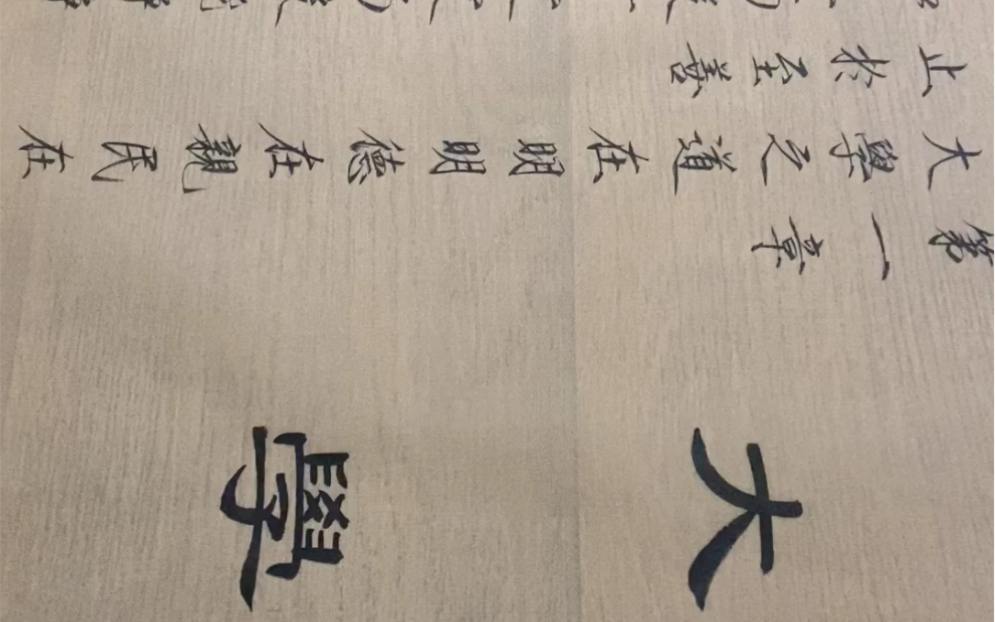 大學
第一章
大學之道在明明德在親民在
止於至善